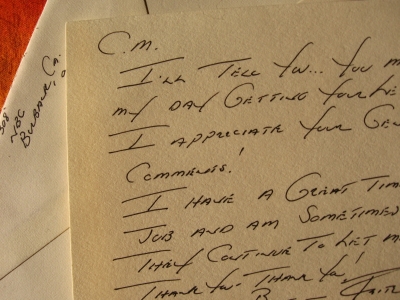 C.M.
I'll Tell You... You m
my day Getting Your Le
I appreciate Your Gen
Comments!
I Have a Great Tim
Job and am Sometimes
They Continue To Let m
Thank You. Thank You!
308
NBC
Burbank, Ca.